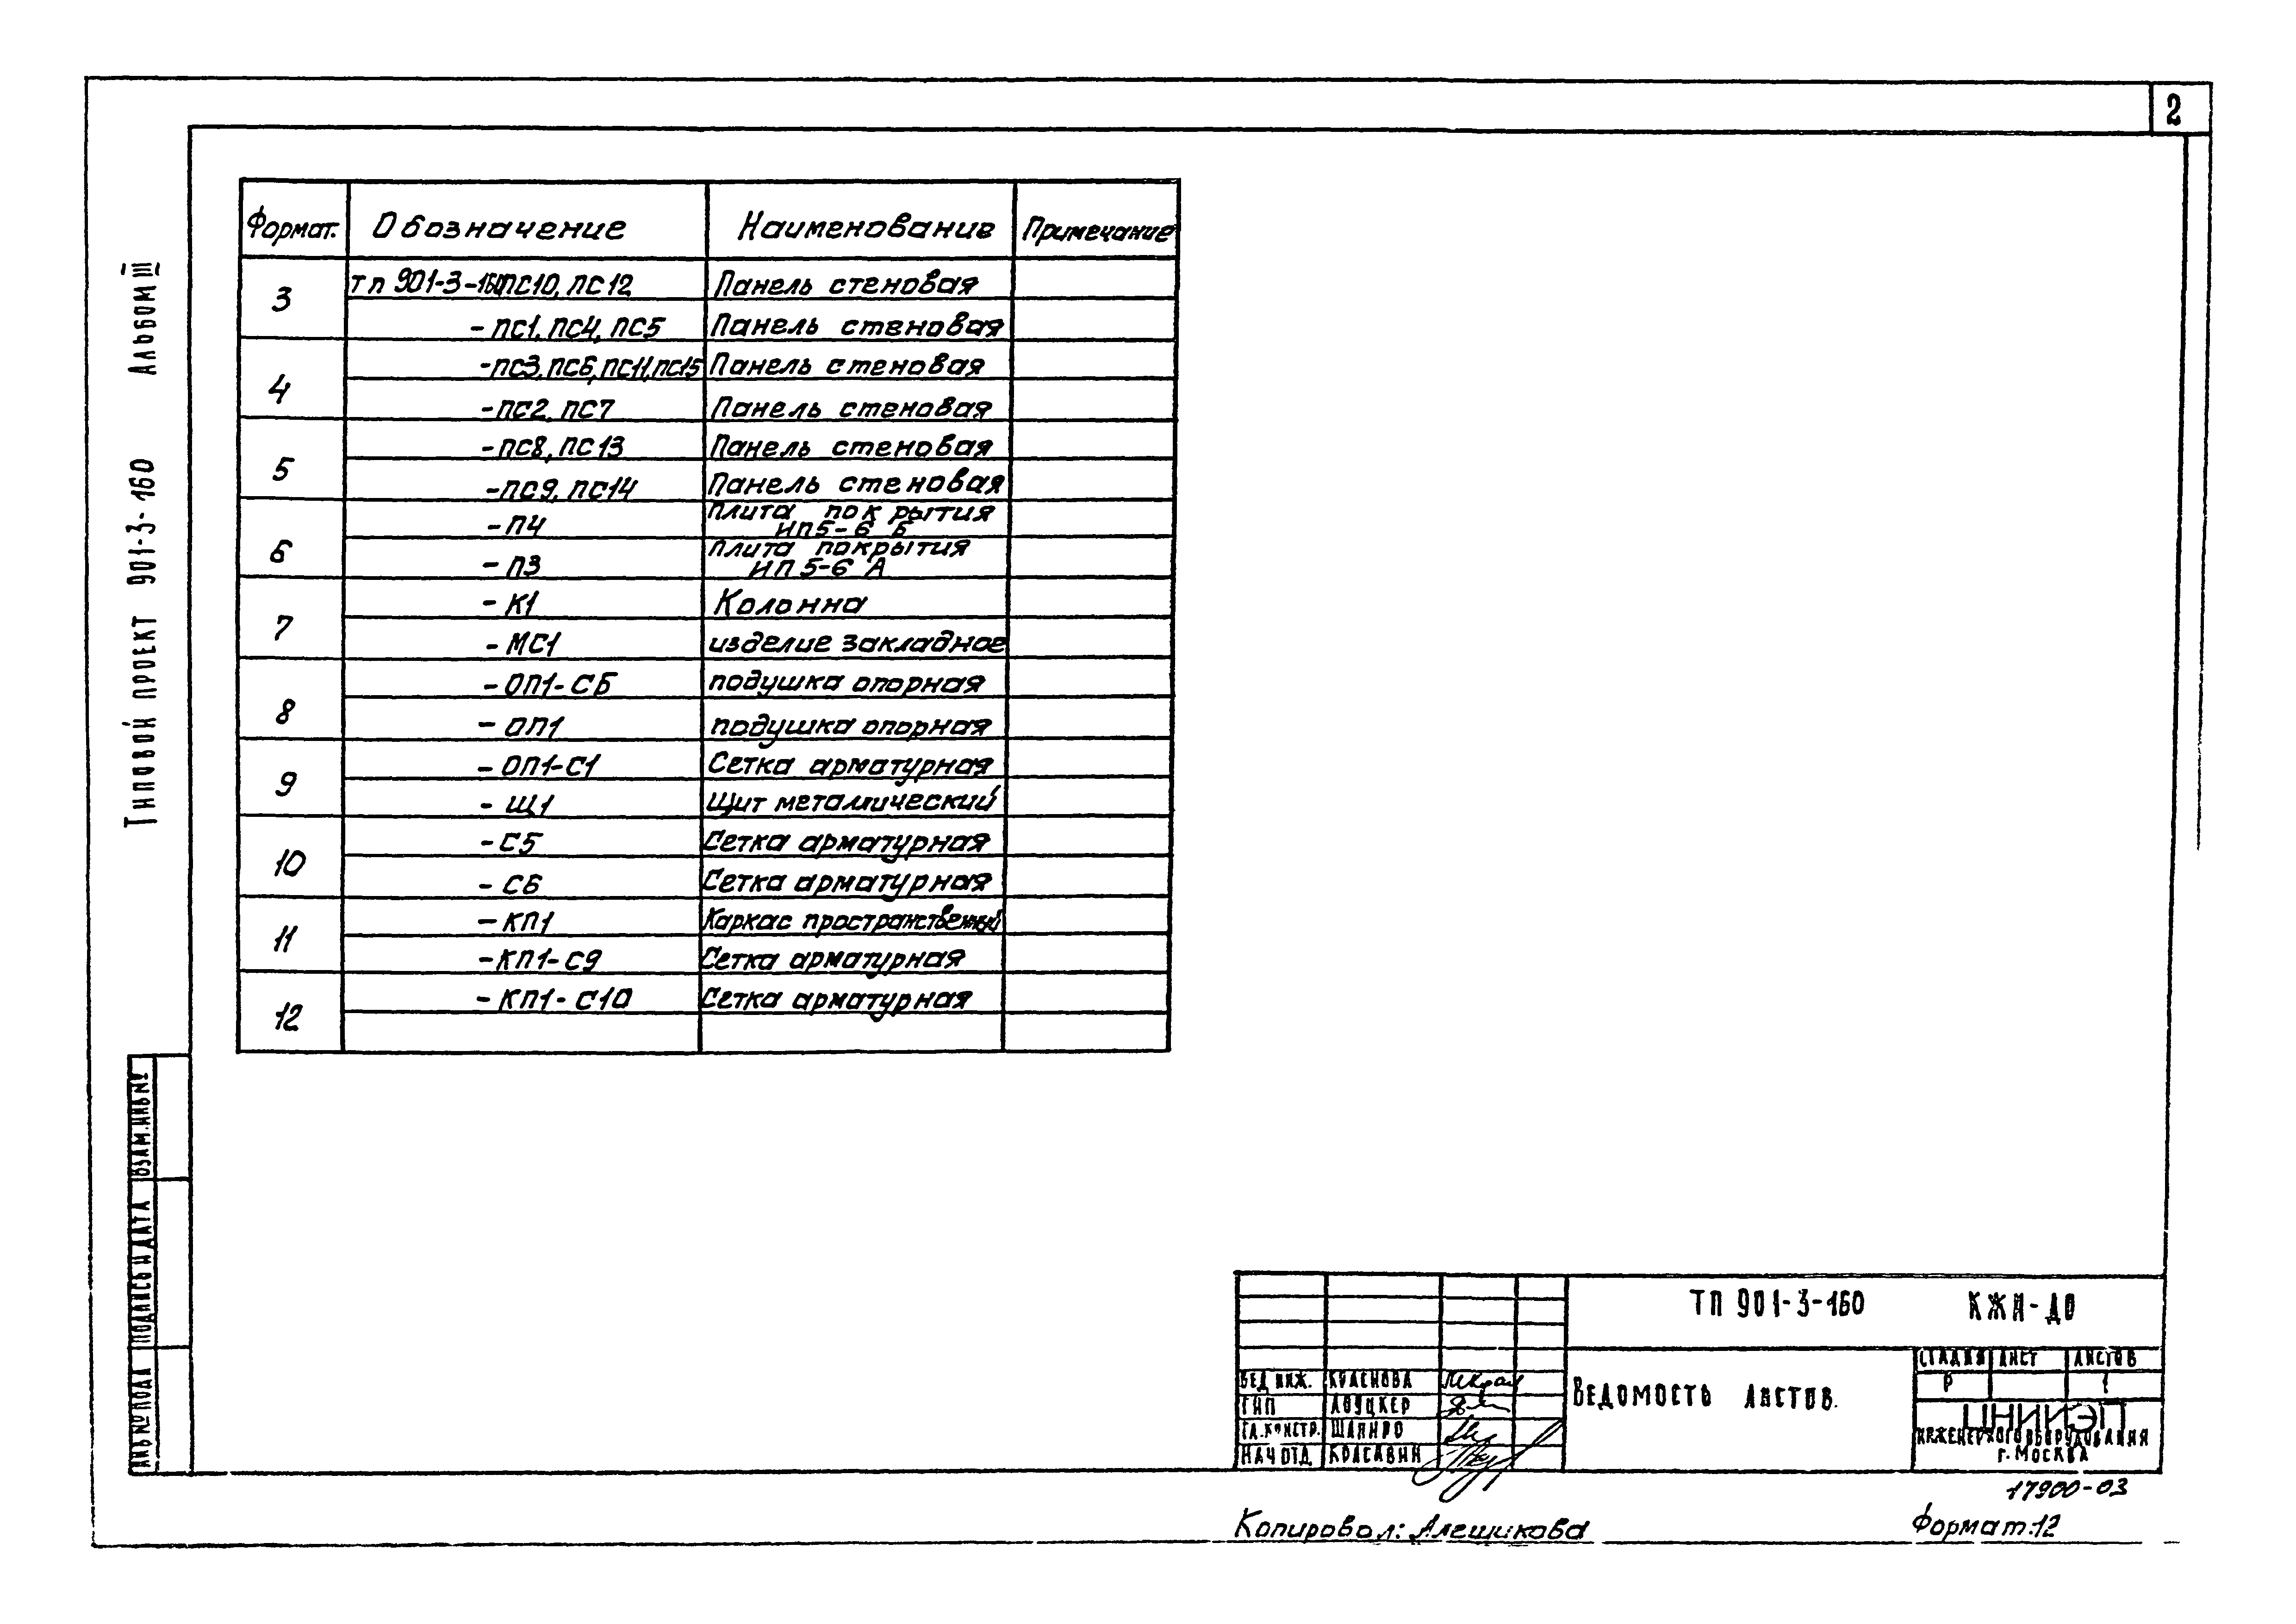 2
Типовой проект 901-3-160 Альбом III
Формат. Обозначение Наименование Примечание
3 тп 901-3-160 ПС10, ПС12 Панель стеновая
-ПС1, ПС4, ПС5 Панель стеновая
4 -ПС3, ПС6, ПС11, ПС15 Панель стеновая
-ПС2, ПС7 Панель стеновая
5 -ПС8, ПС13 Панель стеновая
-ПС9, ПС14 Панель стеновая
6 -П4 плита покрытия
ИП5-6 Б
-П3 плита покрытия
ИП5-6 А
7 -К1 Колонна
-МС1 изделие закладное
8 -ОП1-СБ подушка опорная
-ОП1 подушка опорная
9 -ОП1-С1 Сетка арматурная
-Щ1 Щит металлический
10 -С5 Сетка арматурная
-С6 Сетка арматурная
11 -КП1 Каркас пространственный
-КП1-С9 Сетка арматурная
12 -КП1-С10 Сетка арматурная
Взам.инв№
Подпись и дата
Инв№ подл
ТП 901-3-160 КЖИ-ДО
Ведомость листов.
Стадия Лист Листов
Р 1
Вед инж.
ГИП Лоуцкер
Гл.констр. Шапиро
Нач отд. Колсавин
ЦНИИЭП
инженерного оборудования
г. Москва
17900-03
Копировал: Алещикова Формат.12